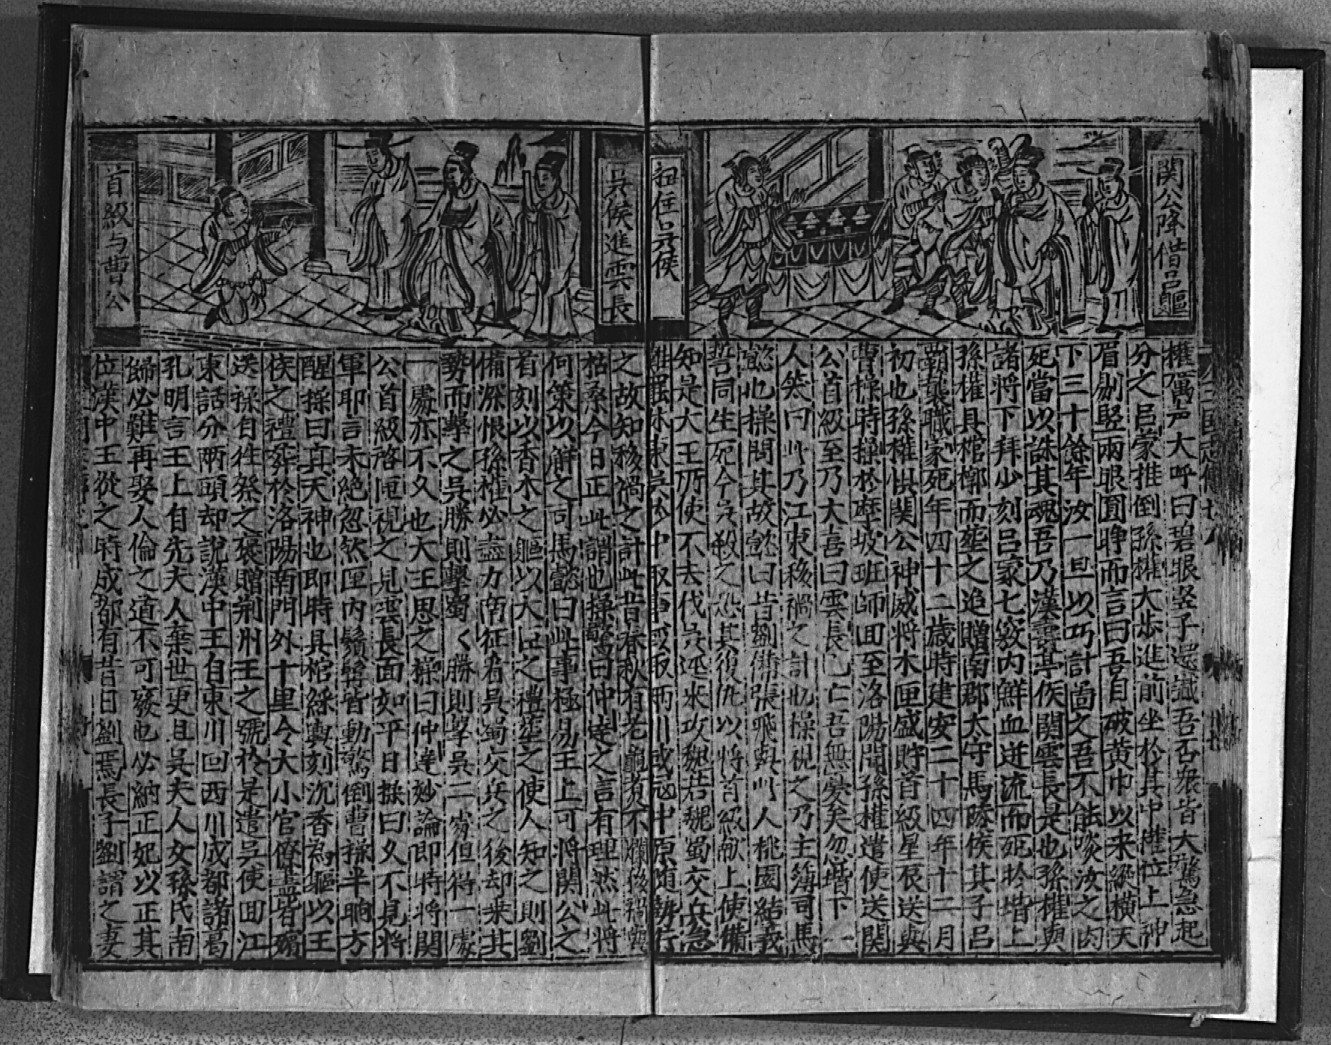 関公降借呂軀
扭住吳侯
權厲声大呼曰碧眼竖子還識吾否衆皆大驚急起
分之呂蒙推倒孫權大步進前坐於其中權位上神
眉剔竪兩眼圓睁而言曰吾自破黄巾以来縱横天
下三十餘年汝一旦以巧計啚之吾不能啖汝之肉
死當以誅其魂吾乃漢壽亭侯関雲長是也孫權與
諸将下拜少刻吕蒙七竅内鮮血迸流而死於堦上
孫權具棺槨而塟之追贈南郡太守 陵侯其子吕
覇襲職蒙死年四十二歲時建安二十四年十二月
初也孫權惧関公神威将木匣盛貯首級星辰送與
曹操時操於摩坡班師回至洛陽聞孫權遣使送関
公首級至乃大喜曰雲長已亡吾無 矣忽堦下一
人笑曰此乃江東移禍之計也操視之乃主簿司馬
懿也操問其故懿曰昔劉俻張飛與此人桃園結義
誓同生死今吳殺之恐其復仇以将首級献上使俻
知是大王所使不去伐吳 来攻魏若魏蜀交兵急
東吳於中取事或取兩川或冦中原
之故知移禍之計此昔春秋有老龜煑不爛後移
枯桑今日正此謂也操驚曰仲達之言有理然此将
何策以解之司馬懿曰此事極易王上可将関公之
首刻以香木之軀以大臣之禮塟之使人知之則劉
俻深恨孫權必盡力南征看吳蜀交兵之後却乗其
勢而擊之吳勝則擊蜀く勝則擊吳二處但得一處
一處亦不久也大王思之操曰仲達妙論即時将関
公首級啓匣視之見雲長面如平日操曰久不見将
軍耶言未絶忽然匣内鬚髮皆動驚倒曹操半晌方
醒操曰真天神也即時具棺 輿刻沉香為軀以王
侯之禮葬於洛陽南門外十里令大小官僚盡皆
送操自作祭之褒贈荆州王之號於是遣吳使回江
東話分兩頭却說漢中王自東川回西川成都諸葛
孔明言王上自先夫人棄世更且吳夫人女孫氏南
歸必難再娶人倫之道不可廢也必納正妃以正其
位漢中王從之時成都有昔日劉焉長子劉謂之妻
吳侯進雲長
首級与曹公